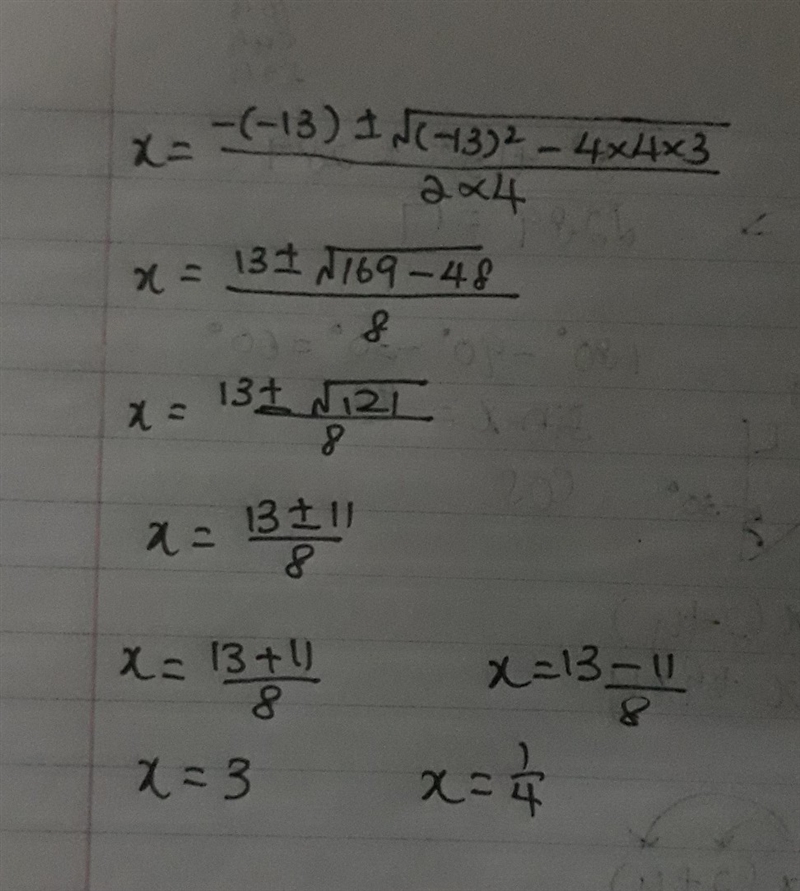 x = -(-13) ± √(-13)² - 4×4×3 / 2×4
x = 13 ± √169 - 48 / 8
x = 13 ± √121 / 8
x = 13 ± 11 / 8
x = 13 + 11 / 8 x = 13 - 11 / 8
x = 3 x = 1/4